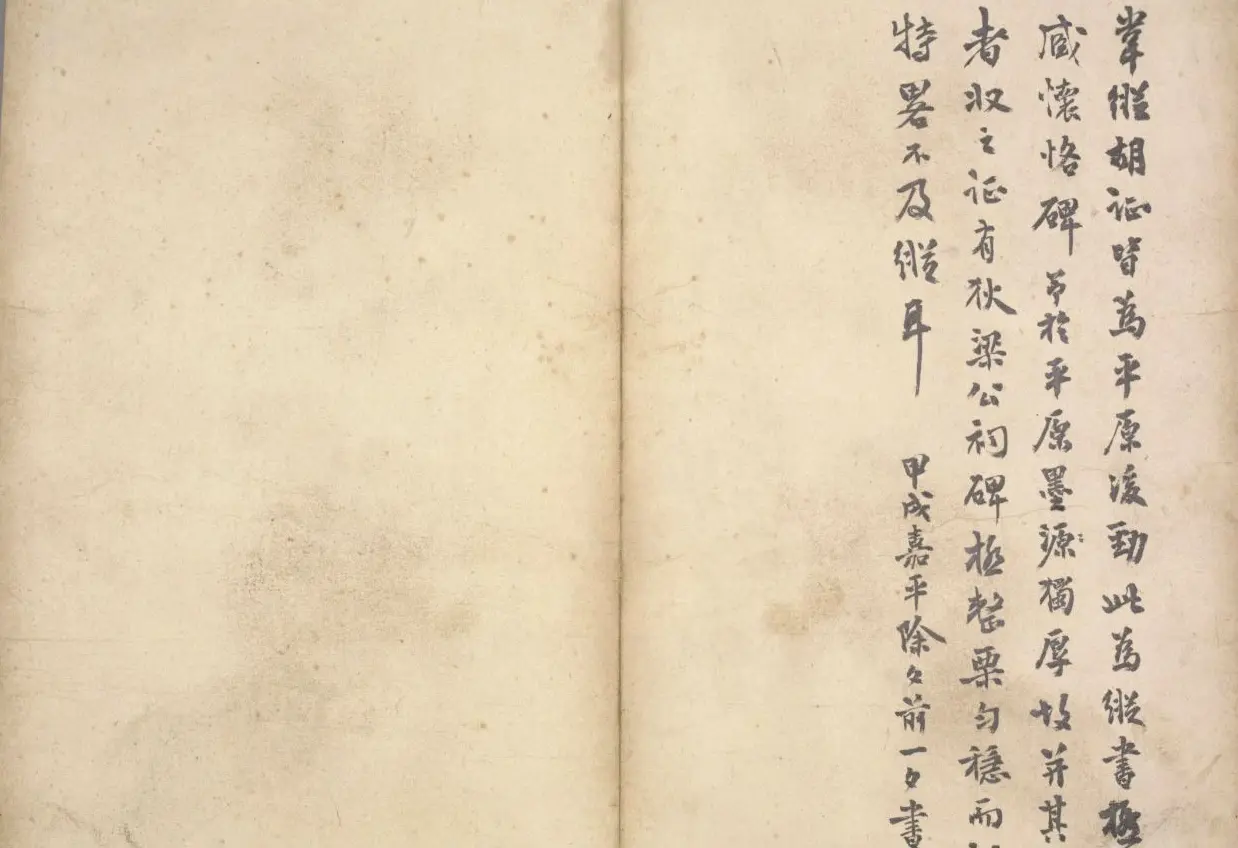 韋縱胡証皆為平原後勁此為縱書極
臧懷恪碑於平原墨源獨厚故并其
者收之証有狄梁公祠碑極整栗勻穩而
特畧不及縱耳
甲戌嘉平除夕前一夕書